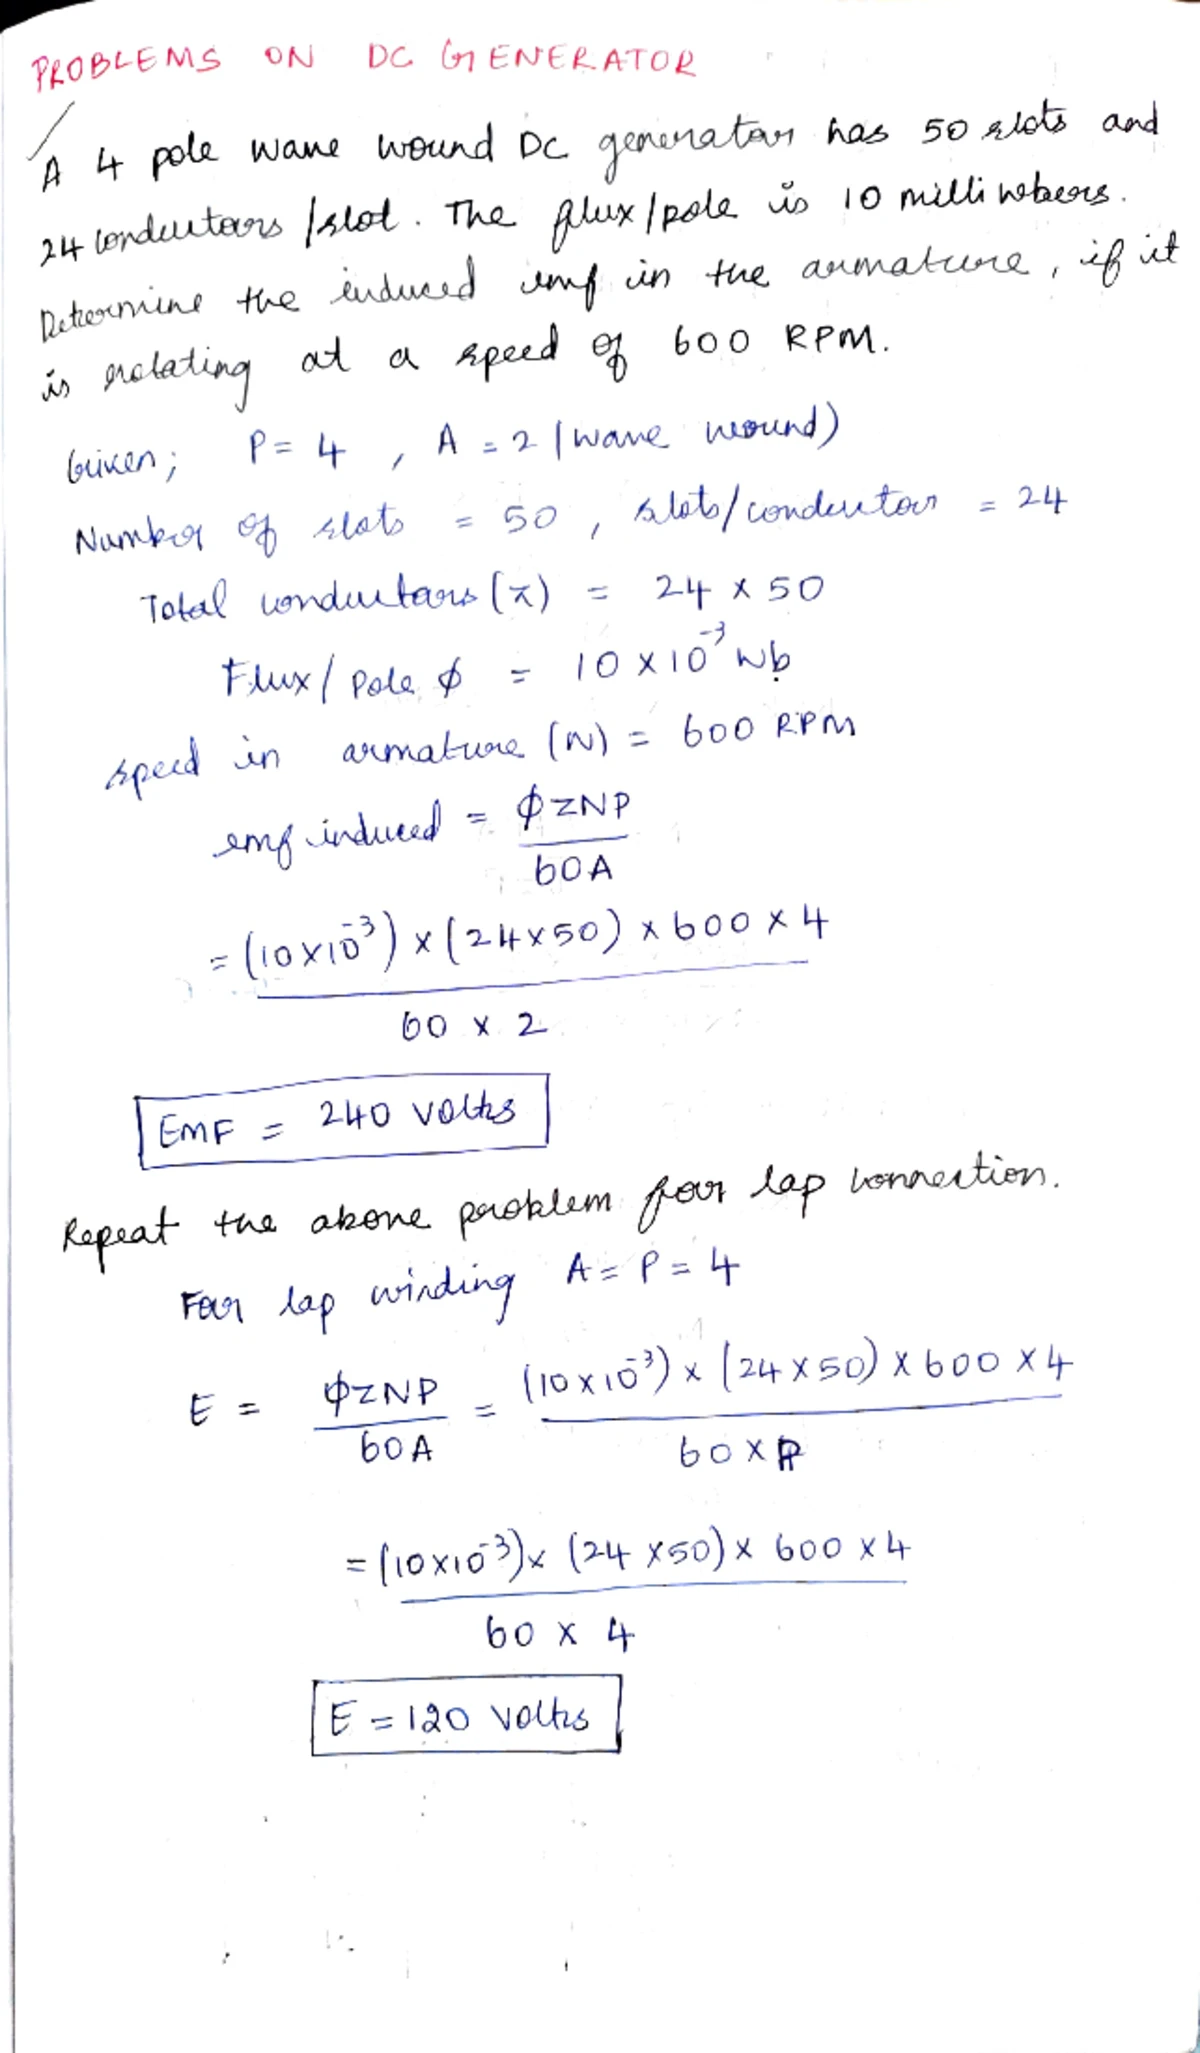 PROBLEMS ON DC GENERATOR
A 4 pole wave wound DC generator has 50 slots and
24 conductors /slot. The flux/pole is 10 milli webers.
Determine the induced emf in the armature, if it
is rotating at a speed of 600 RPM.
Given; P = 4 , A = 2 (wave wound)
Number of slots = 50 , slots/conductor = 24
Total conductors (z) = 24 x 50
Flux/ Pole ϕ = 10 x 10⁻³ wb
speed in armature (N) = 600 RPM
emf induced = ϕZNP
60A
= (10x10⁻³) x (24x50) x 600 x 4
60 x 2
EMF = 240 volts
Repeat the above problem for lap connection.
For lap winding A = P = 4
E = ϕZNP = (10x10⁻³) x (24x50) x 600 x 4
60A 60 x
= (10x10⁻³)x (24 x50) x 600 x 4
60 x 4
E = 120 volts